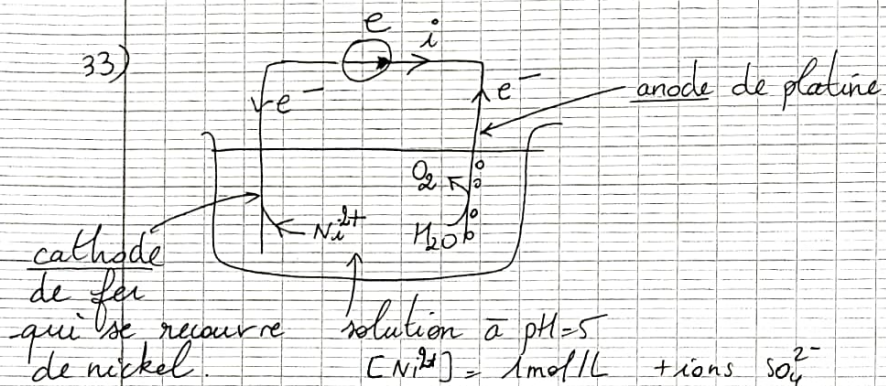 33)
e
i
e⁻
e⁻
anode de platine
O₂
Ni²⁺
H₂O
cathode
de fer
qui se recouvre
de nickel.
solution à pH=5
[Ni²⁺] = 1mol/L + ions SO₄²⁻